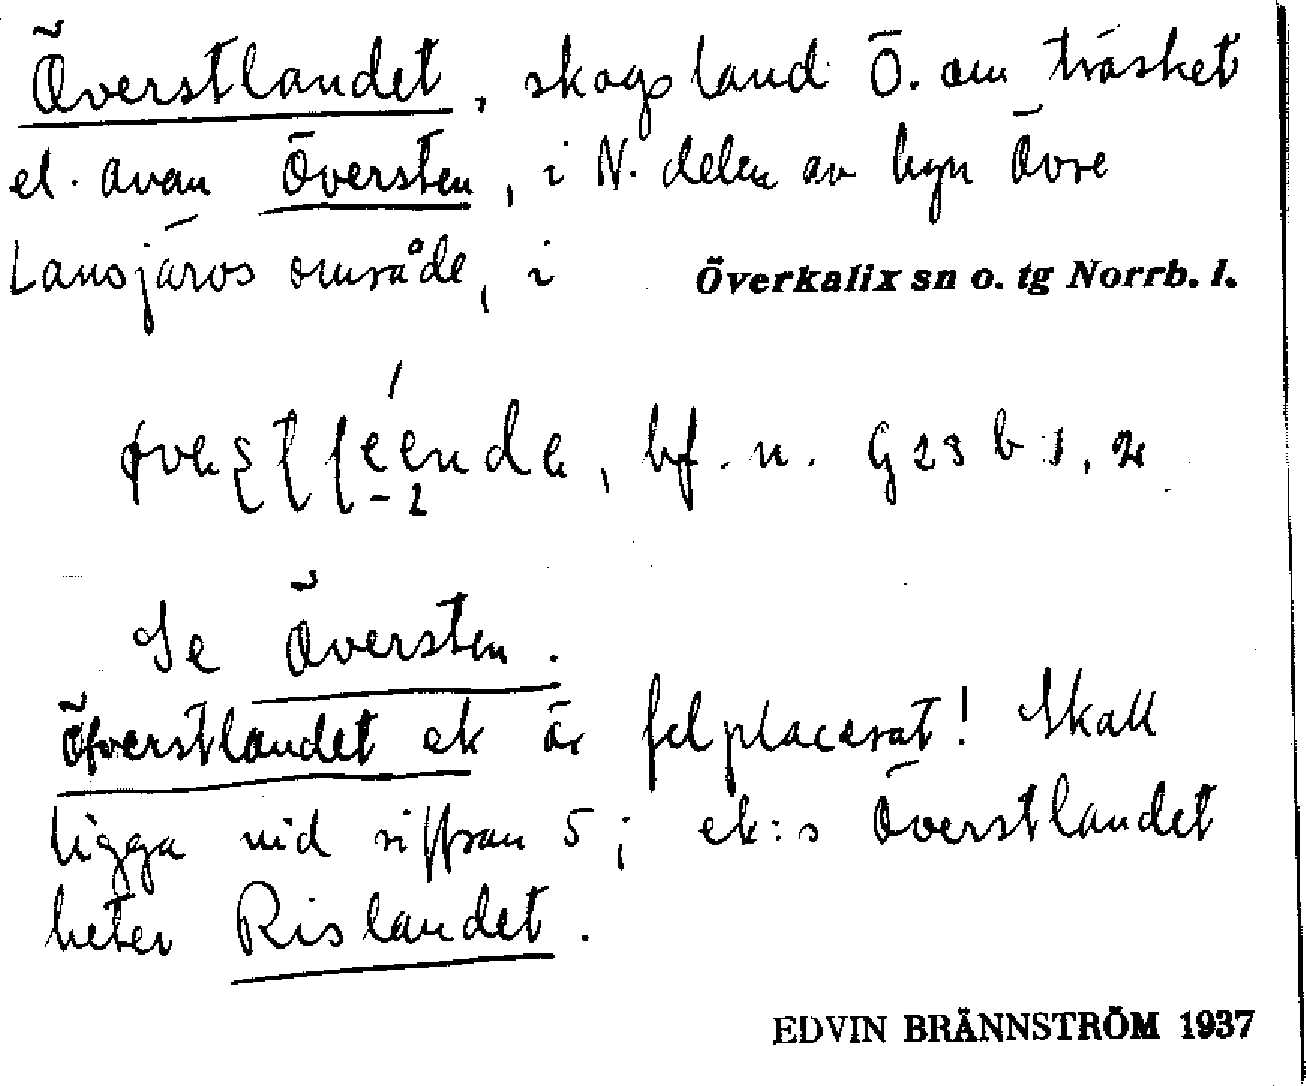 Överstlandet, skogsland Ö. om träsket
el. avan Översten, i N. delen av byn Övre
Lansjärvs område, i Överkalix sn o. tg Norrb. l.
bf. n. G 23 b 1, 2
Se Översten.
Öfverstlandet ek är felplacerat! Skall
ligga vid siffran 5; ek:s Överstlandet
heter Rislandet.
EDVIN BRÄNNSTRÖM 1937